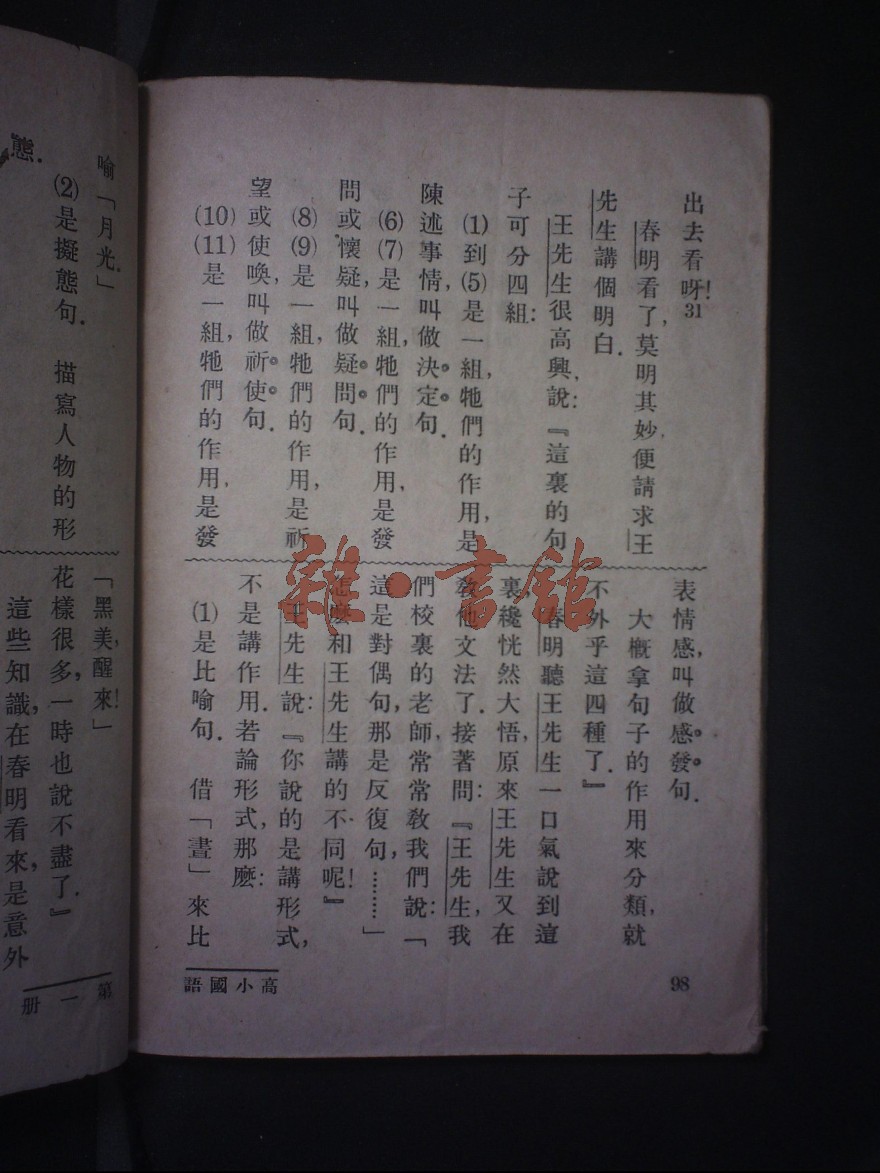 出去看呀!31
春明看了,莫明其妙,便請求王
先生講個明白.
王先生很高興,說:『這裏的句
子可分四組:
(1)到(5)是一組,牠們的作用,是
陳述事情,叫做決定句.
(6)(7)是一組,牠們的作用,是發
問或懷疑,叫做疑問句.
(8)(9)是一組,牠們的作用,是祈
望或使喚,叫做祈使句.
(10)(11)是一組,牠們的作用,是發
表情感,叫做感發句.
大概拿句子的作用來分類,就
不外乎這四種了.』
春明聽王先生一口氣說到這
裏,纔恍然大悟,原來王先生又在
教他文法了.接著問:『王先生,我
們校裏的老師,常常教我們說:「
這是對偶句,那是反復句,………」
怎麼和王先生講的不同呢!』
王先生說:『你說的是講形式,
不是講作用.若論形式,那麼:
(1)是比喻句. 借「晝」來比
98
高小國語
喻「月光.」
(2)是擬態句. 描寫人物的形
態.
「黑美,醒來!」
花樣很多,一時也說不盡了.』
這些知識,在春明看來,是意外
第一册
雜·書館